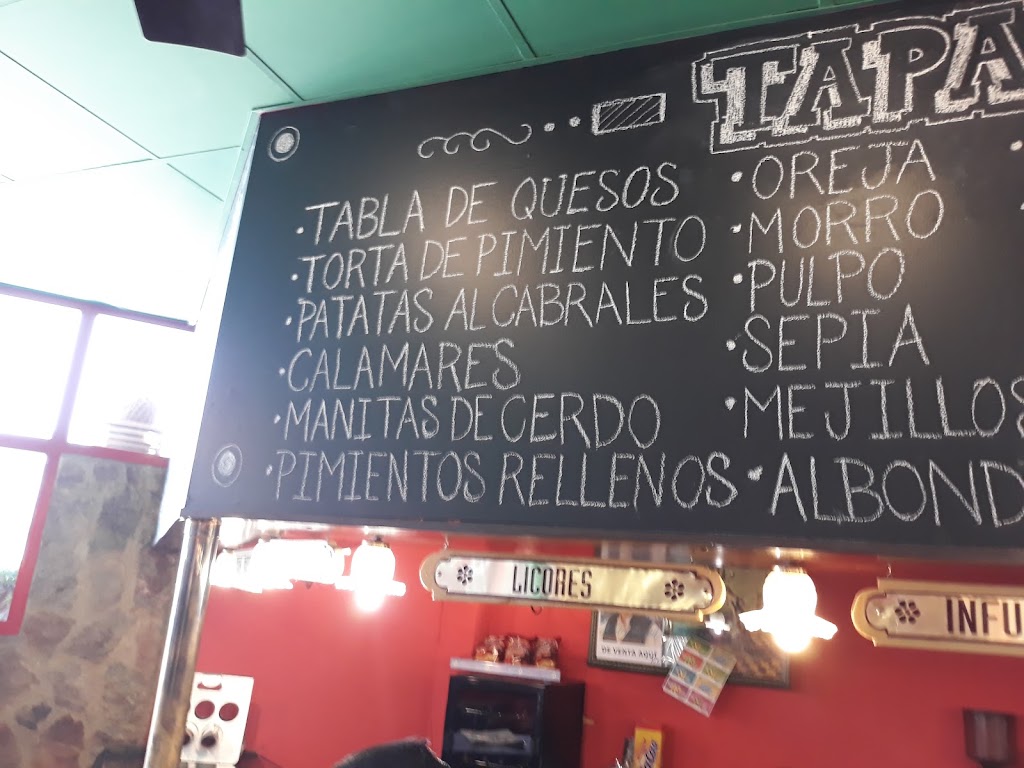 TAPA
·TABLA DE QUESOS
·TORTA DE PIMIENTO
·PATATAS AL CABRALES
·CALAMARES
·MANITAS DE CERDO
·PIMIENTOS RELLENOS
·OREJA
·MORRO
·PULPO
·SEPIA
·MEJILLOS
·ALBOND
LICORES
INFU
DE VENTA AQUÍ